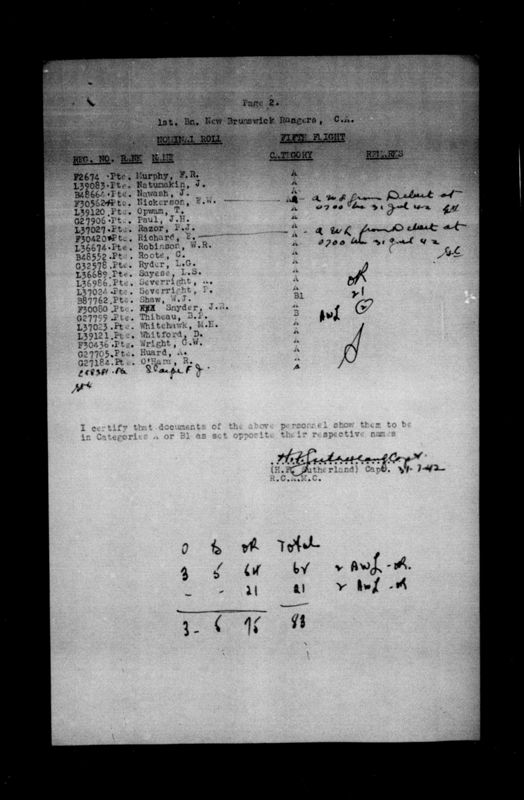 Page 2.
1st. Bn. New Brunswick Rangers, C.A.
NOMINAL ROLL FIFTH FLIGHT
REG. NO. RANK NAME CATEGORY REMARKS
F2674 Pte. Murphy, F.R. A
L39083 Pte. Natumakin, J. A
B48664 Pte. Nawash, J. A
F30562 Pte. Nickerson, E.W. A A W L from Debert at
L39120 Pte. Opwam, T. A 0700 hrs 31 Jul 42
G27906 Pte. Paul, J.H. A
L37027 Pte. Razor, F.J. A A W L from Debert at
F30420 Pte. Richard, E. A 0700 hrs 31 Jul 42
L36674 Pte. Robinson, W.R. A
B48552 Pte. Roote, C. A
G32578 Pte. Ryder, L.G. A
L36689 Pte. Sayese, L.S. A
L36986 Pte. Severright, A
L37024 Pte. Severright, A
B87762 Pte. Shaw, W.J. B1
F30080 Pte. Snyder, J.R. A
G27799 Pte. Thibeau, B
L37023 Pte. Whitehawk, M.H. A
L39121 Pte. Whitford, D. A
F30436 Pte. Wright, C.W. A
G27705 Pte. Huard, A. A
G27184 Pte. O'Hara, R. A
OR
21
AWL 2
I certify that documents of the above personnel show them to be
in Categories A or B1 as set opposite their respective names
(H.F. Sutherland) Capt. 31-7-42
R.C.A.M.C.
O S OR Total
3 5 62 2 AWL - OR.
- - 21 21 2 AWL - OR
3 - 75 83